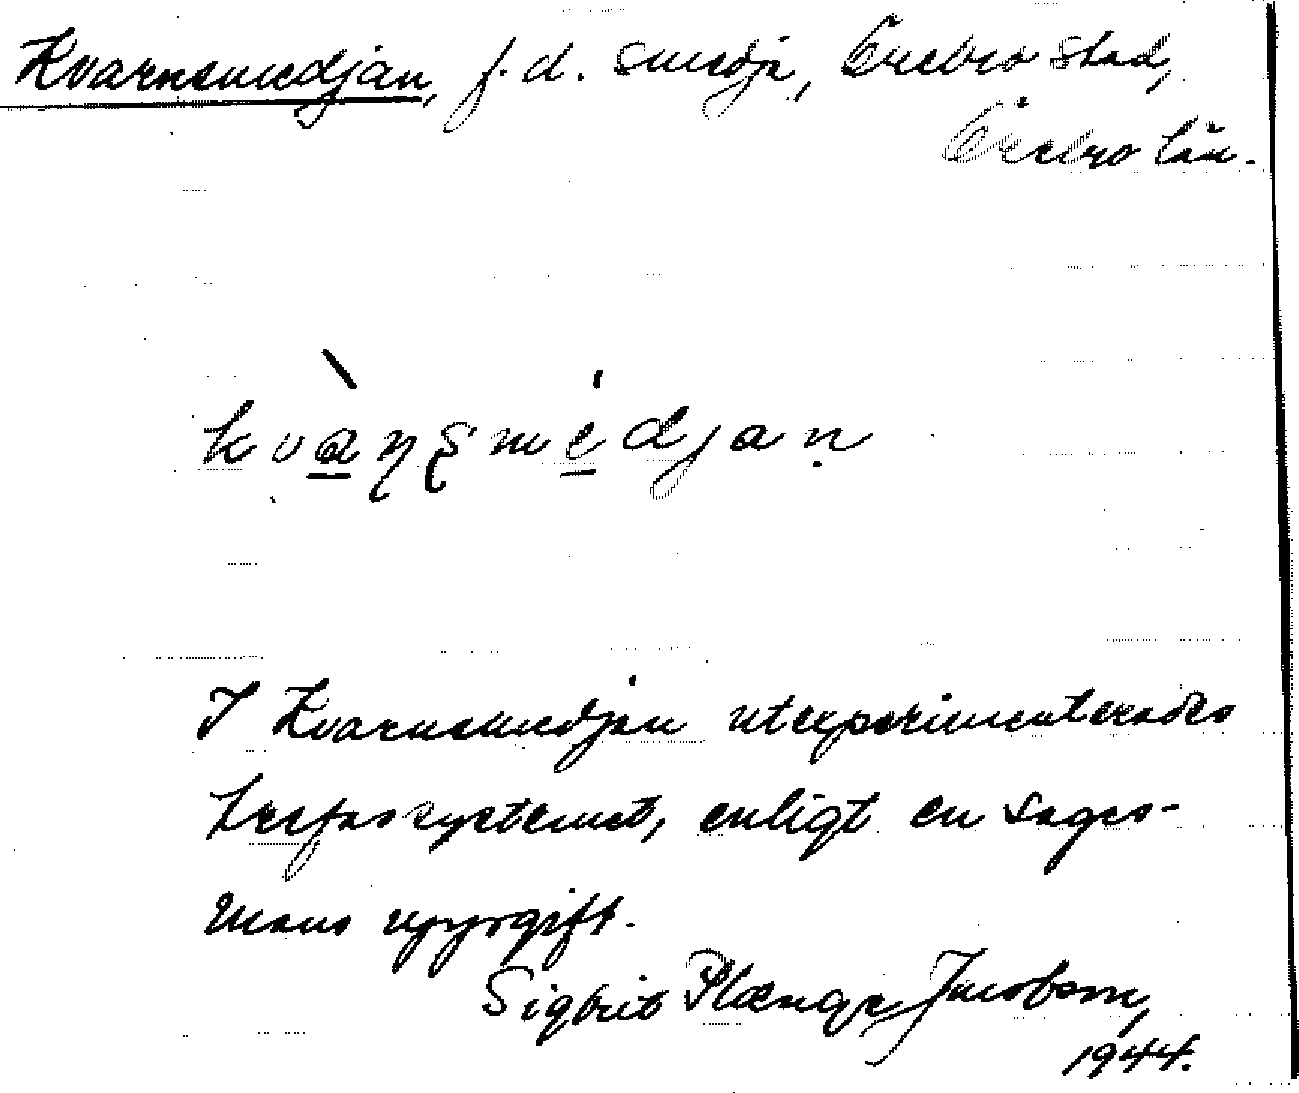 Kvarnsmedjan, f.d. smedja, Örebro stad,
Örebro län.
kvàṇṣmédjaṇ
I Kvarnsmedjan utexperimenterades
bessystemet, enligt en sages-
mans uppgift.
Sigbrit Plænge Jacobson,
1944.